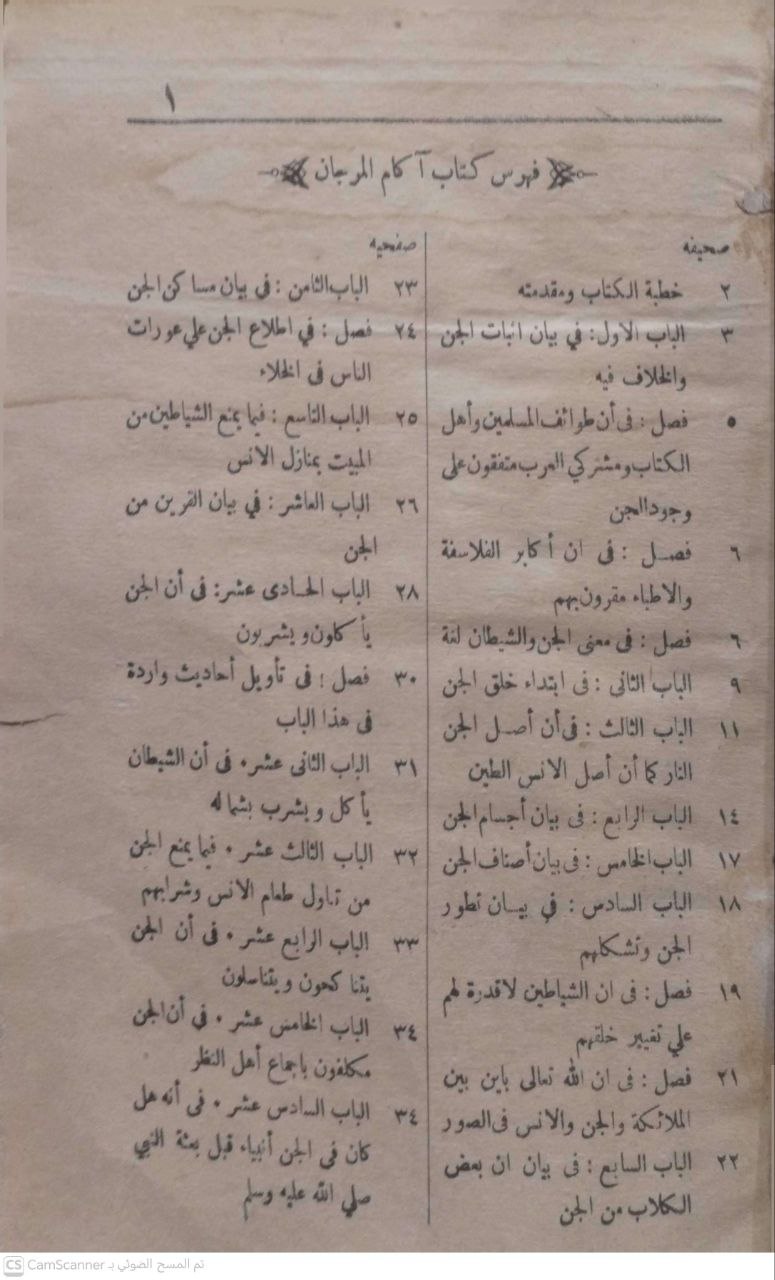 ١
فهرس كتاب آكام المرجان
صحيفه
٢ خطبة الكتاب ومقدمته
٣ الباب الاول: في بيان اثبات الجن
والخلاف فيه
٥ فصل : فى أن طوائف المسلمين وأهل
الكتاب ومشركي العرب متفقون على
وجود الجن
٦ فصل : فى ان أكابر الفلاسفة
والاطباء مقرون بهم
٦ فصل : فى معنى الجن والشيطان لغة
٩ الباب الثانى : فى ابتداء خلق الجن
١١ الباب الثالث : فى أن أصل الجن
النار كما أن أصل الانس الطين
١٤ الباب الرابع : فى بيان أجسام الجن
١٧ الباب الخامس : فى بيان أصناف الجن
١٨ الباب السادس : في بيان تطور
الجن وتشكلهم
١٩ فصل : فى ان الشياطين لا قدرة لهم
علي تغيير خلقهم
٢١ فصل : فى ان الله تعالى باين بين
الملائكة والجن والانس فى الصور
٢٢ الباب السابع : فى بيان ان بعض
الكلاب من الجن
صفحيه
٢٣ الباب الثامن : فى بيان مساكن الجن
٢٤ فصل : في اطلاع الجن علي عورات
الناس فى الخلاء
٢٥ الباب التاسع : فيما يمنع الشياطين من
المبيت بمنازل الانس
٢٦ الباب العاشر : في بيان القرين من
الجن
٢٨ الباب الحادى عشر: فى أن الجن
يأكلون ويشربون
٣٠ فصل : فى تأويل أحاديث واردة
فى هذا الباب
٣١ الباب الثانى عشر٠ فى أن الشيطان
يأكل ويشرب بشماله
٣٢ الباب الثالث عشر ٠ فيما يمنع الجن
من تناول طعام الانس وشرابهم
٣٣ الباب الرابع عشر ٠ فى أن الجن
يتناكحون ويتناسلون
٣٤ الباب الخامس عشر ٠ في أن الجن
مكلفون باجماع أهل النظر
٣٤ الباب السادس عشر ٠ فى أنه هل
كان فى الجن أنبياء قبل بعثة النبي
صلي الله عليه وسلم
CS CamScanner تم المسح الضوئي بـ